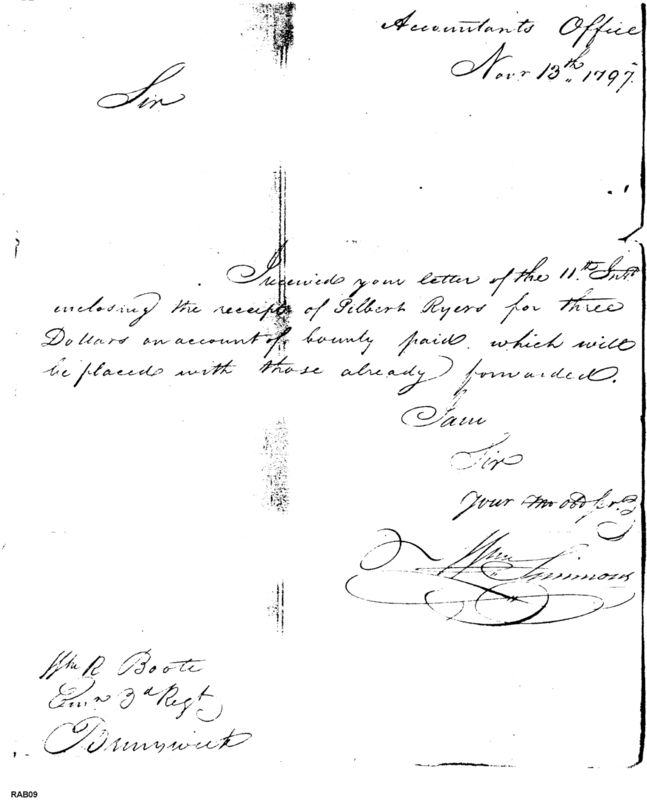 Accountants Office
Novr. 13th. 1797.
Sir
I received your letter of the 11th. Inst
enclosing the receipt of Gilbert Ryers for three
Dollars on account of bounty paid, which will
be placed with those already forwarded.
I am
Sir
your Obd Ser.
Wm Simmons
Wm R Boote
3d Regt
Brunswick
RAB09